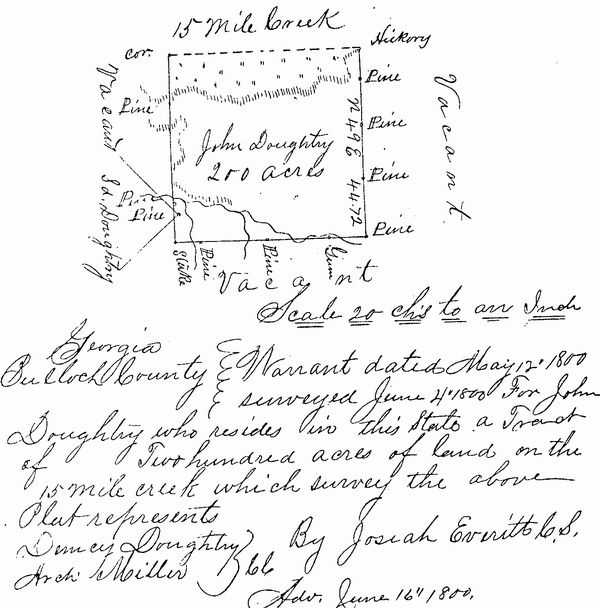 15 Mile Creek
cor.
Hickory
Pine
Vacant
Pine
Vacant
Pine
N 49 E 44.72
John Doughtry
200 acres
Pine
Jd. Doughtry
Pine
Pine
Pine
Stake
Pine
Pine
Gum
Vacant
Scale 20 chs to an Inch
Georgia
Bulloch County
Warrant dated May 12" 1800
surveyed June 4" 1800 For John
Doughtry who resides in this State a Tract
of Two hundred acres of land on the
15 mile creek which survey the above
Plat represents
Demcy Doughtry
Arch. Miller
CC
By Josiah Everitt C.S.
Adv. June 16" 1800.